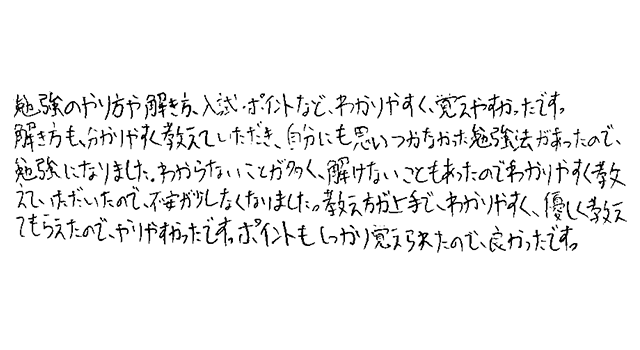 勉強のやり方や解き方、入試ポイントなど、わかりやすく、覚えやすかったです。
解き方も、分かりやすく教えていただき、自分にも思いつかなかった勉強法があったので、
勉強になりました。わからないことが多く、解けないこともあったのでわかりやすく教
えていただいたので、不安が少しなくなりました。教え方が上手で、わかりやすく、優しく教え
てもらえたので、やりやすかったです。ポイントもしっかり覚えられたので、良かったです。